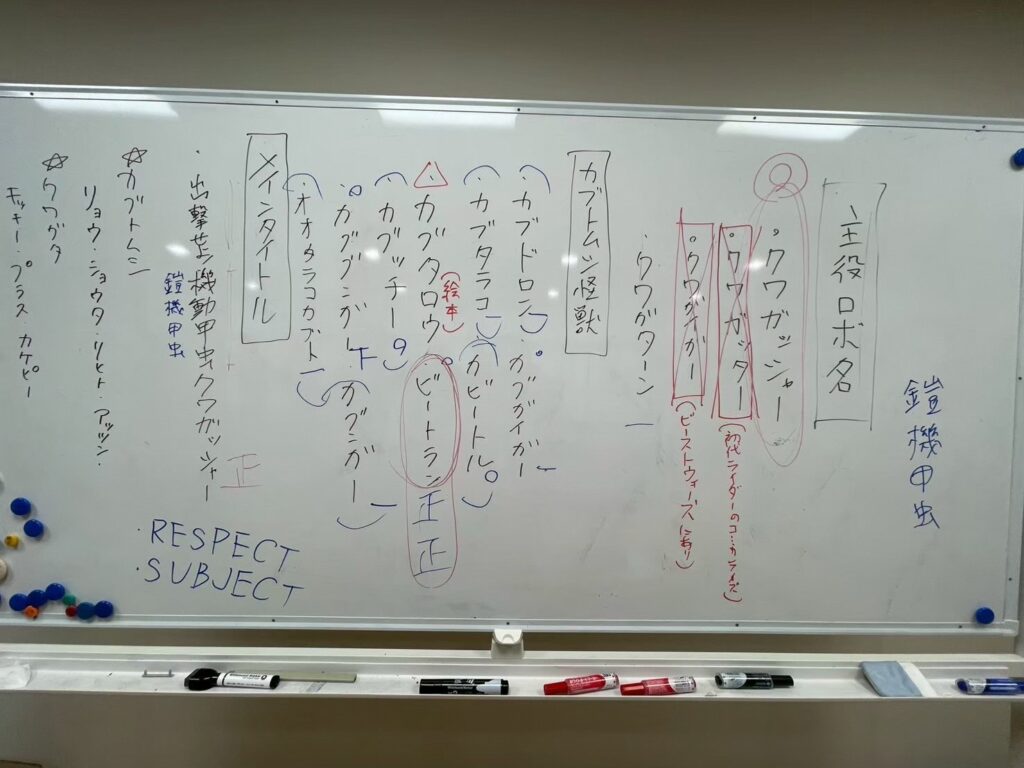 鎧機甲虫
主役ロボ名
・クワガッシャー
・クワガッター
(初代ライダーのコ・カンナイズ)
・クワガイガー
(ビーストウォーズにあり)
・クワガターン
カブトムシ怪獣
・カブドロン
・カブガイガー
・カブタラコ
・カビートル
・カブタロウ
(絵本)
・ビートラン
正正
・カブッチー
・カブブンガー
・カブンガー
・オオタラコカブト
メインタイトル
・出撃せよ機動甲虫クワガッシャー
正
鎧機甲虫
☆カブトムシ
リョウ・ショウタ・リヒト・アッツン・
☆クワガタ
キッキー・プラス・カケピー
・RESPECT
・SUBJECT